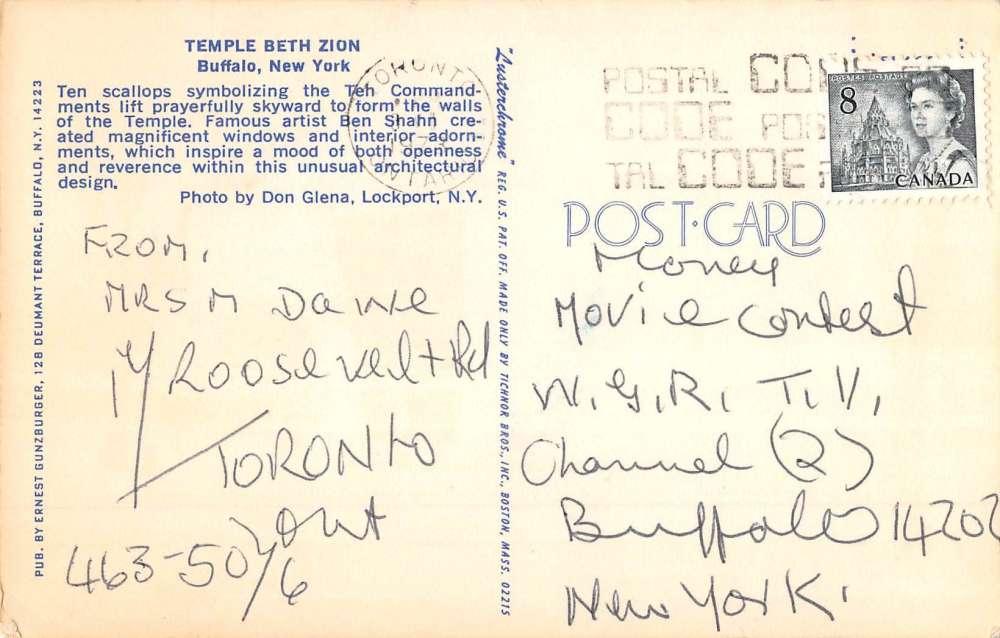 TEMPLE BETH ZION
Buffalo, New York
Ten scallops symbolizing the Ten Command-
ments lift prayerfully skyward to form the walls
of the Temple. Famous artist Ben Shahn cre-
ated magnificent windows and interior adorn-
ments, which inspire a mood of both openness
and reverence within this unusual architectural
design.
Photo by Don Glena, Lockport, N.Y.
PUB. BY ERNEST GUNZBURGER, 128 DEUMANT TERRACE, BUFFALO, N.Y. 14223
"Lusterchrome" REG. U.S. PAT. OFF. MADE ONLY BY TICHNOR BROS., INC., BOSTON, MASS. 02215
TORONTO
ONTARIO
POSTAL CODE
CODE POS
TAL CODE
POSTES POSTAGE
8
CANADA
POST CARD
FROM,
MRS M Dawe
Roosevelt Rd
TORONTO
Ont
463-5046
Money
Movie Contest
W.G.R. T.V.
Channel (2)
Buffalo 14202
New York.